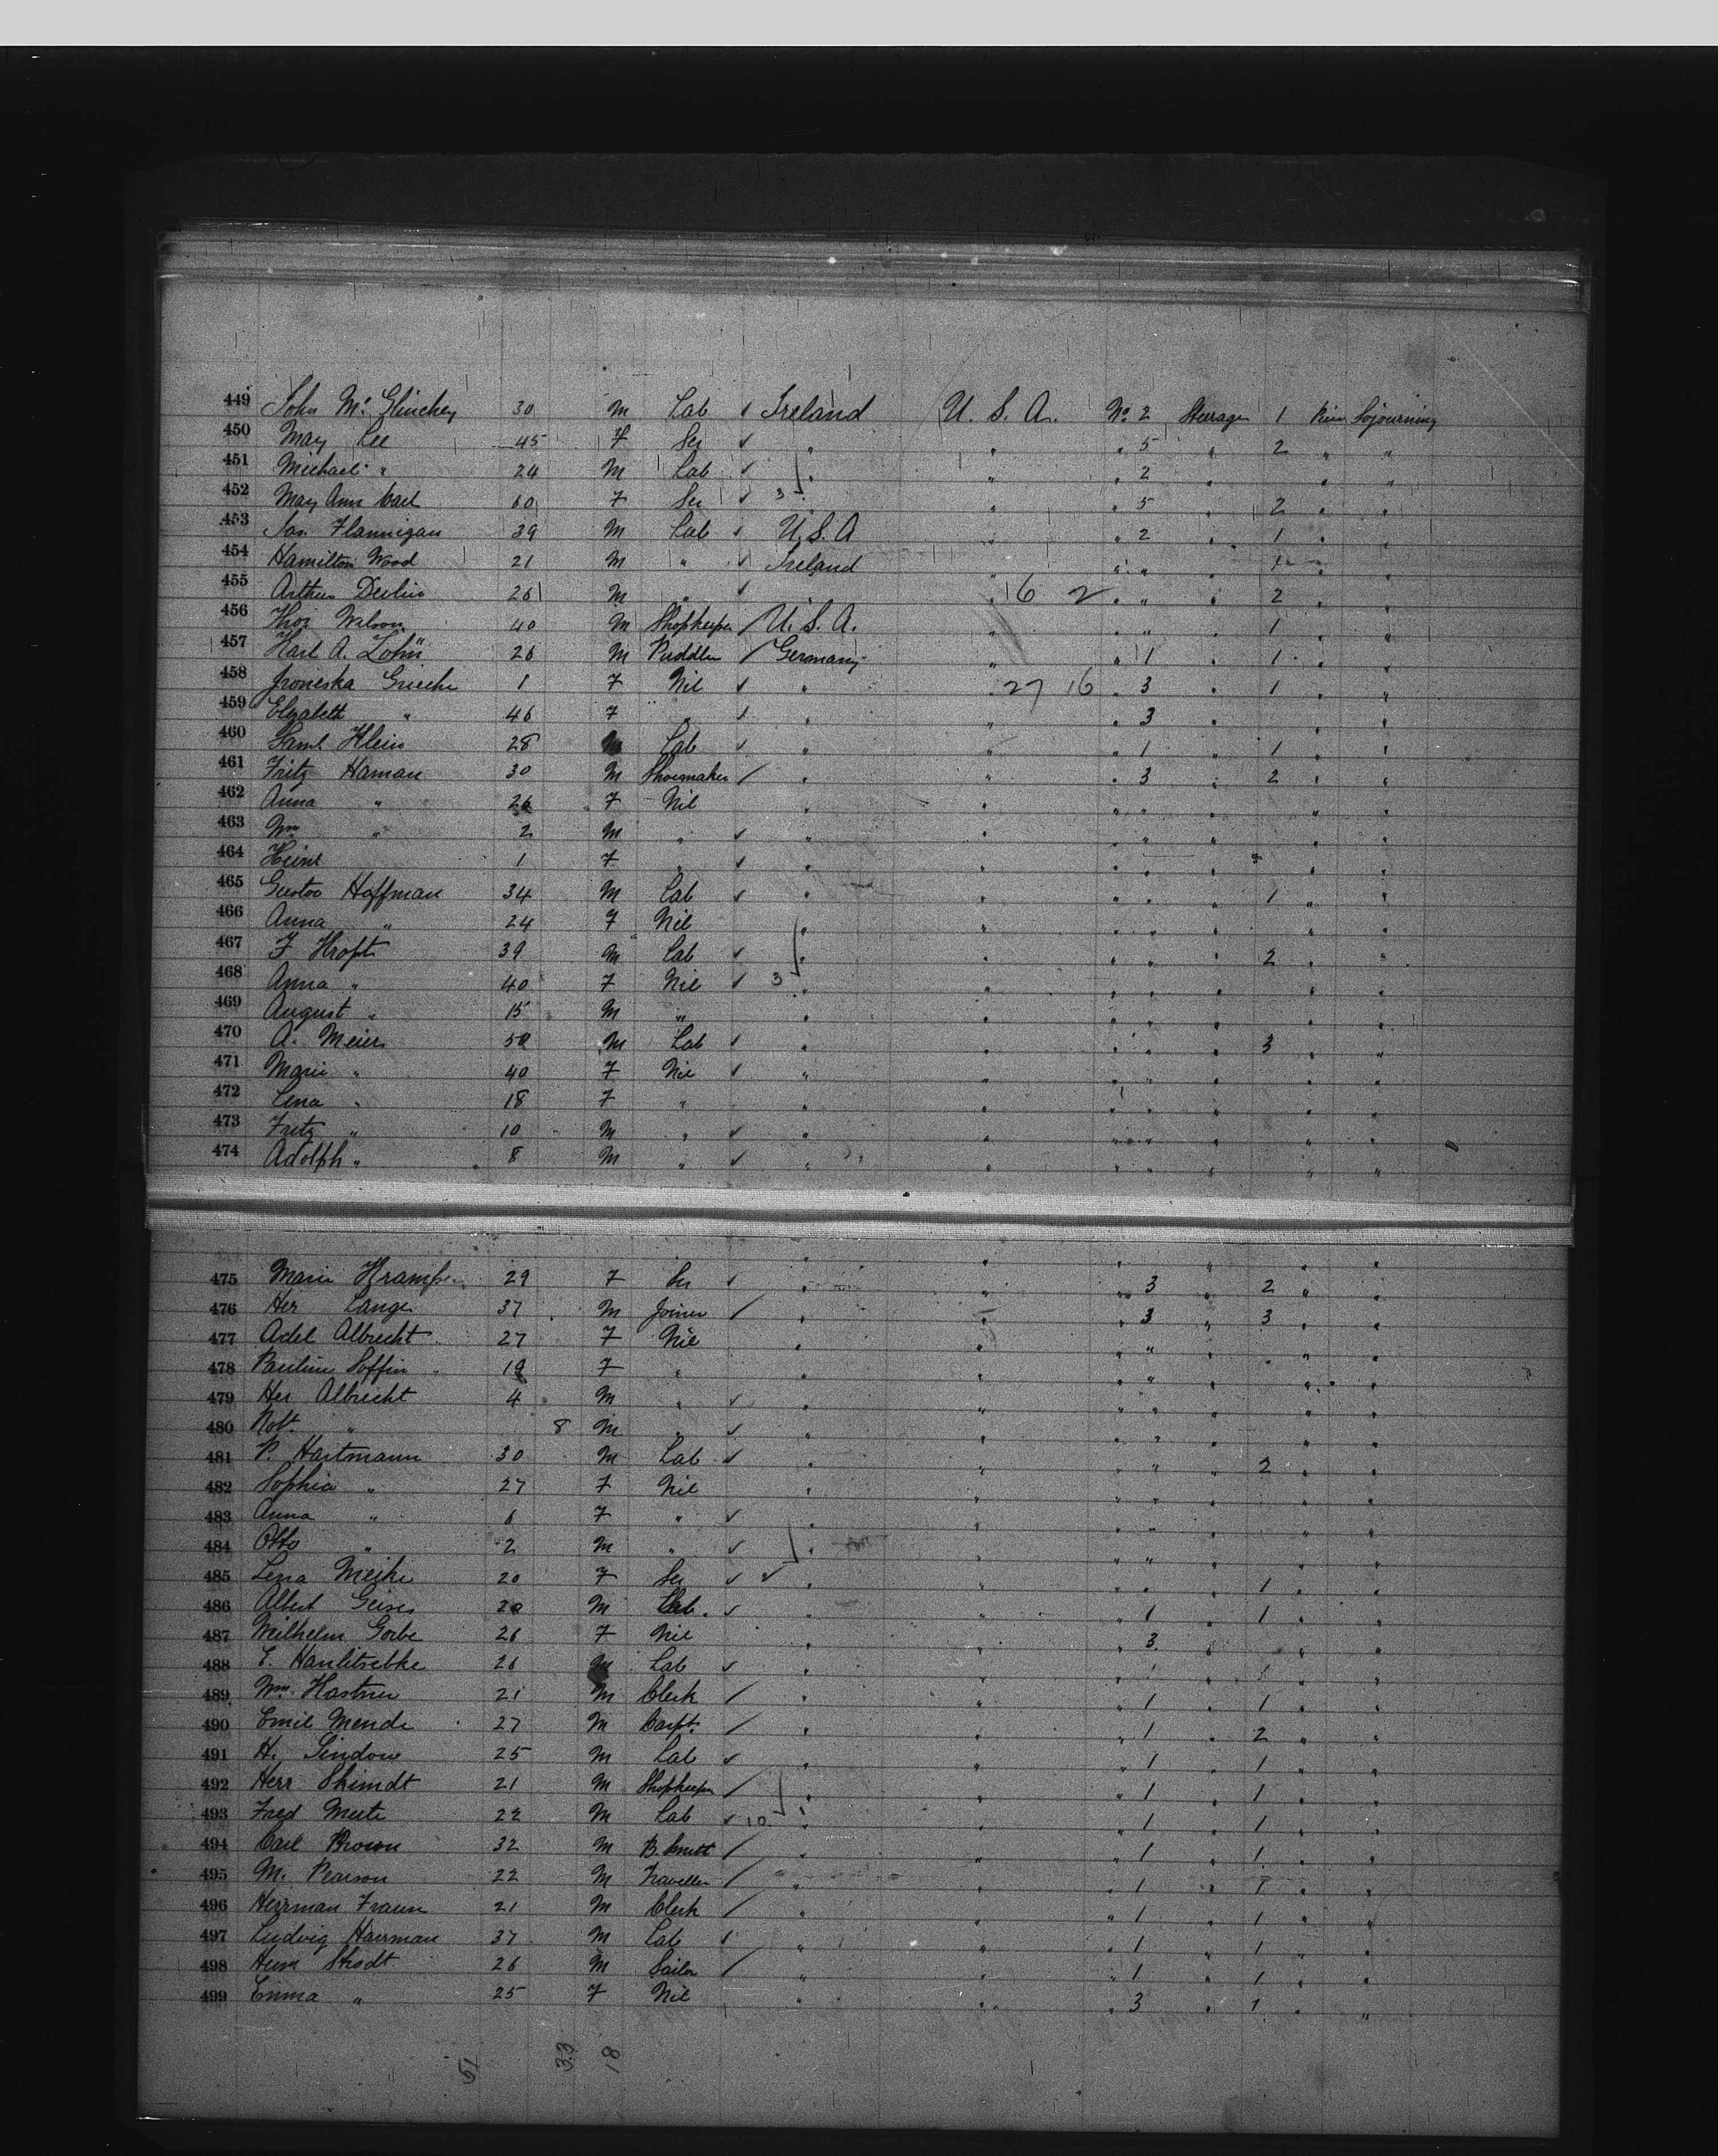 449 John McGlinchey 30 M Lab ✓ Ireland U. S. A. No. 2 Steerage 1 Piece Sojourning
450 May Lee 45 F Ser ✓ " " " 5 " 2 " "
451 Michael " 24 M Lab ✓ " " " 2 " " "
452 May Ann Carl 60 F Ser ✓ 3 " " " 5 " 2 " "
453 Jas. Flannigan 39 M Lab ✓ U.S.A " " 2 " 1 " "
454 Hamilton Wood 21 M " ✓ Ireland " " " " 1 " "
455 Arthur Devlin 26 M " ✓ " 16 2 " " " 2 " "
456 Thos Wilson 40 M Shopkeeper / U. S. A. " " " " 1 " "
457 Karl A. Zohn 26 M Puddler / Germany " " 1 " 1 " "
458 Grieche 1 F Nil ✓ " " 27 16 " 3 " 1 " "
459 Elizabeth " 46 F " ✓ " " " 3 " " "
460 Saml Klein 28 M Lab ✓ " " " 1 " 1 " "
461 Fritz Haman 30 M Shoemaker / " " " 3 " 2 " "
462 Anna " 26 F Nil " " " " " " "
463 Wm " 2 M " ✓ " " " " " " "
464 Heinr 1 F " ✓ " " " " " " "
465 Gustav Hoffman 34 M Lab ✓ " " " " " 1 " "
466 Anna " 24 F Nil " " " " " " "
467 F Kropt 39 M Lab ✓ " " " " " 2 " "
468 Anna " 40 F Nil ✓ 3 " " " " " " "
469 August " 15 M " " " " " " " "
470 A. Meier 50 M Lab ✓ " " " " " 3 " "
471 Marie " 40 F Nil ✓ " " " " " " "
472 Lena " 18 F " " " " " " " "
473 Fritz " 10 M " ✓ " " " " " " "
474 Adolph " 8 M " ✓ " " " " " " "
475 Marie Krampe 29 F Ser ✓ " " " 3 " 2 " "
476 Her Lange 37 M Joiner / " " " 3 " 3 " "
477 Adel Albrecht 27 F Nil " " " " " " "
478 Pauline Soffin 19 F " " " " " " " "
479 Her Albrecht 4 M " ✓ " " " " " " "
480 Robt. " 8 M " ✓ " " " " " " "
481 P. Hartmann 30 M Lab ✓ " " " " " 2 " "
482 Sophia " 27 F Nil " " " " " " "
483 Anna " 6 F " ✓ " " " " " " "
484 Otto " 2 M " ✓ " " " " " " "
485 Lena Meike 20 F Ser ✓ ✓ " " " " " 1 " "
486 Albert Geises 20 M Lab. ✓ " " " 1 " 1 " "
487 Wilhelm Gorbe 26 F Nil " " " 3 " " "
488 E. Hanlitschke 26 M Lab ✓ " " " 1 " 1 " "
489 Wm. Kastner 21 M Clerk / " " " 1 " 1 " "
490 Emil Mende 27 M Carpt. / " " " 1 " 2 " "
491 H. Lindow 25 M Lab ✓ " " " 1 " 1 " "
492 Herr Shimdt 21 M Shopkeeper / " " " 1 " 1 " "
493 Fred Meete 22 M Lab ✓ 10 " " " 1 " 1 " "
494 Carl Brown 32 M B. Smith / " " " 1 " 1 " "
495 M. Pearson 22 M Traveller / " " " 1 " 1 " "
496 Herrman Fraum 21 M Clerk / " " " 1 " 1 " "
497 Ludvig Harrman 37 M Lab ✓ " " " 1 " 1 " "
498 Herm Shodt 26 M Sailor / " " " 1 " 1 " "
499 Emma " 25 F Nil " " " 3 " 1 " "
51 33 18